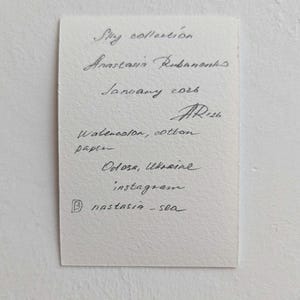 Sky collection
Anastasia Rubanenko
January 2026
AR 26
Watercolor, cotton
paper
Odesa, Ukraine
instagram
nastasia_sea